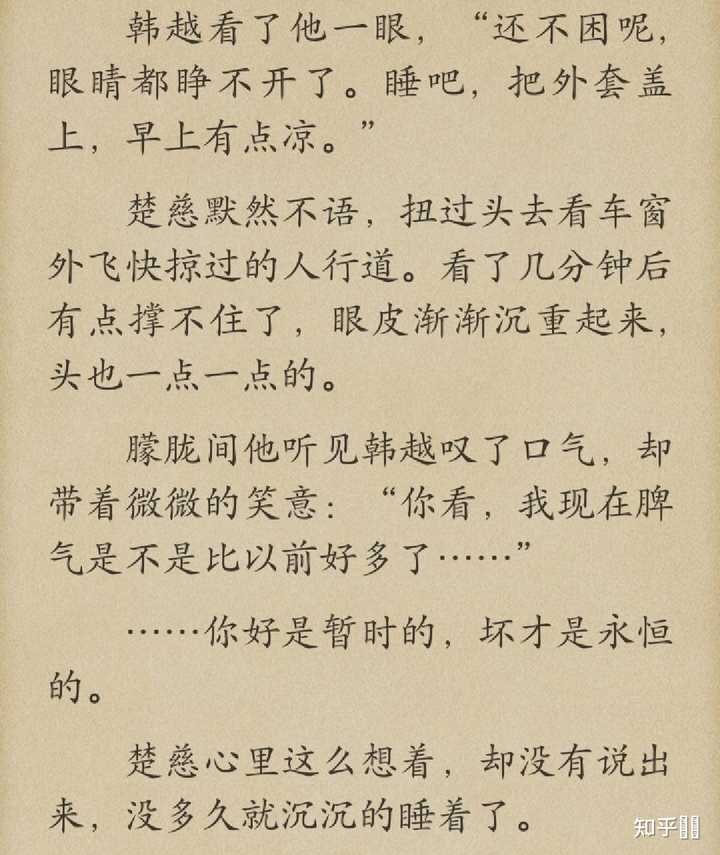 韩越看了他一眼，“还不困呢，
眼睛都睁不开了。睡吧，把外套盖
上，早上有点凉。”
楚慈默然不语，扭过头去看车窗
外飞快掠过的人行道。看了几分钟后
有点撑不住了，眼皮渐渐沉重起来，
头也一点一点的。
朦胧间他听见韩越叹了口气，却
带着微微的笑意：“你看，我现在脾
气是不是比以前好多了……”
……你好是暂时的，坏才是永恒
的。
楚慈心里这么想着，却没有说出
来，没多久就沉沉的睡着了。
知乎